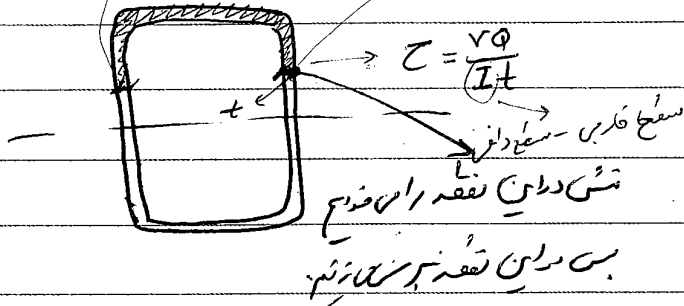 τ = VQ / It
t
سطح خارجی - سطح داخلی
تنش در این نقطه را می خواهیم
پس در این نقطه برش می زنیم.